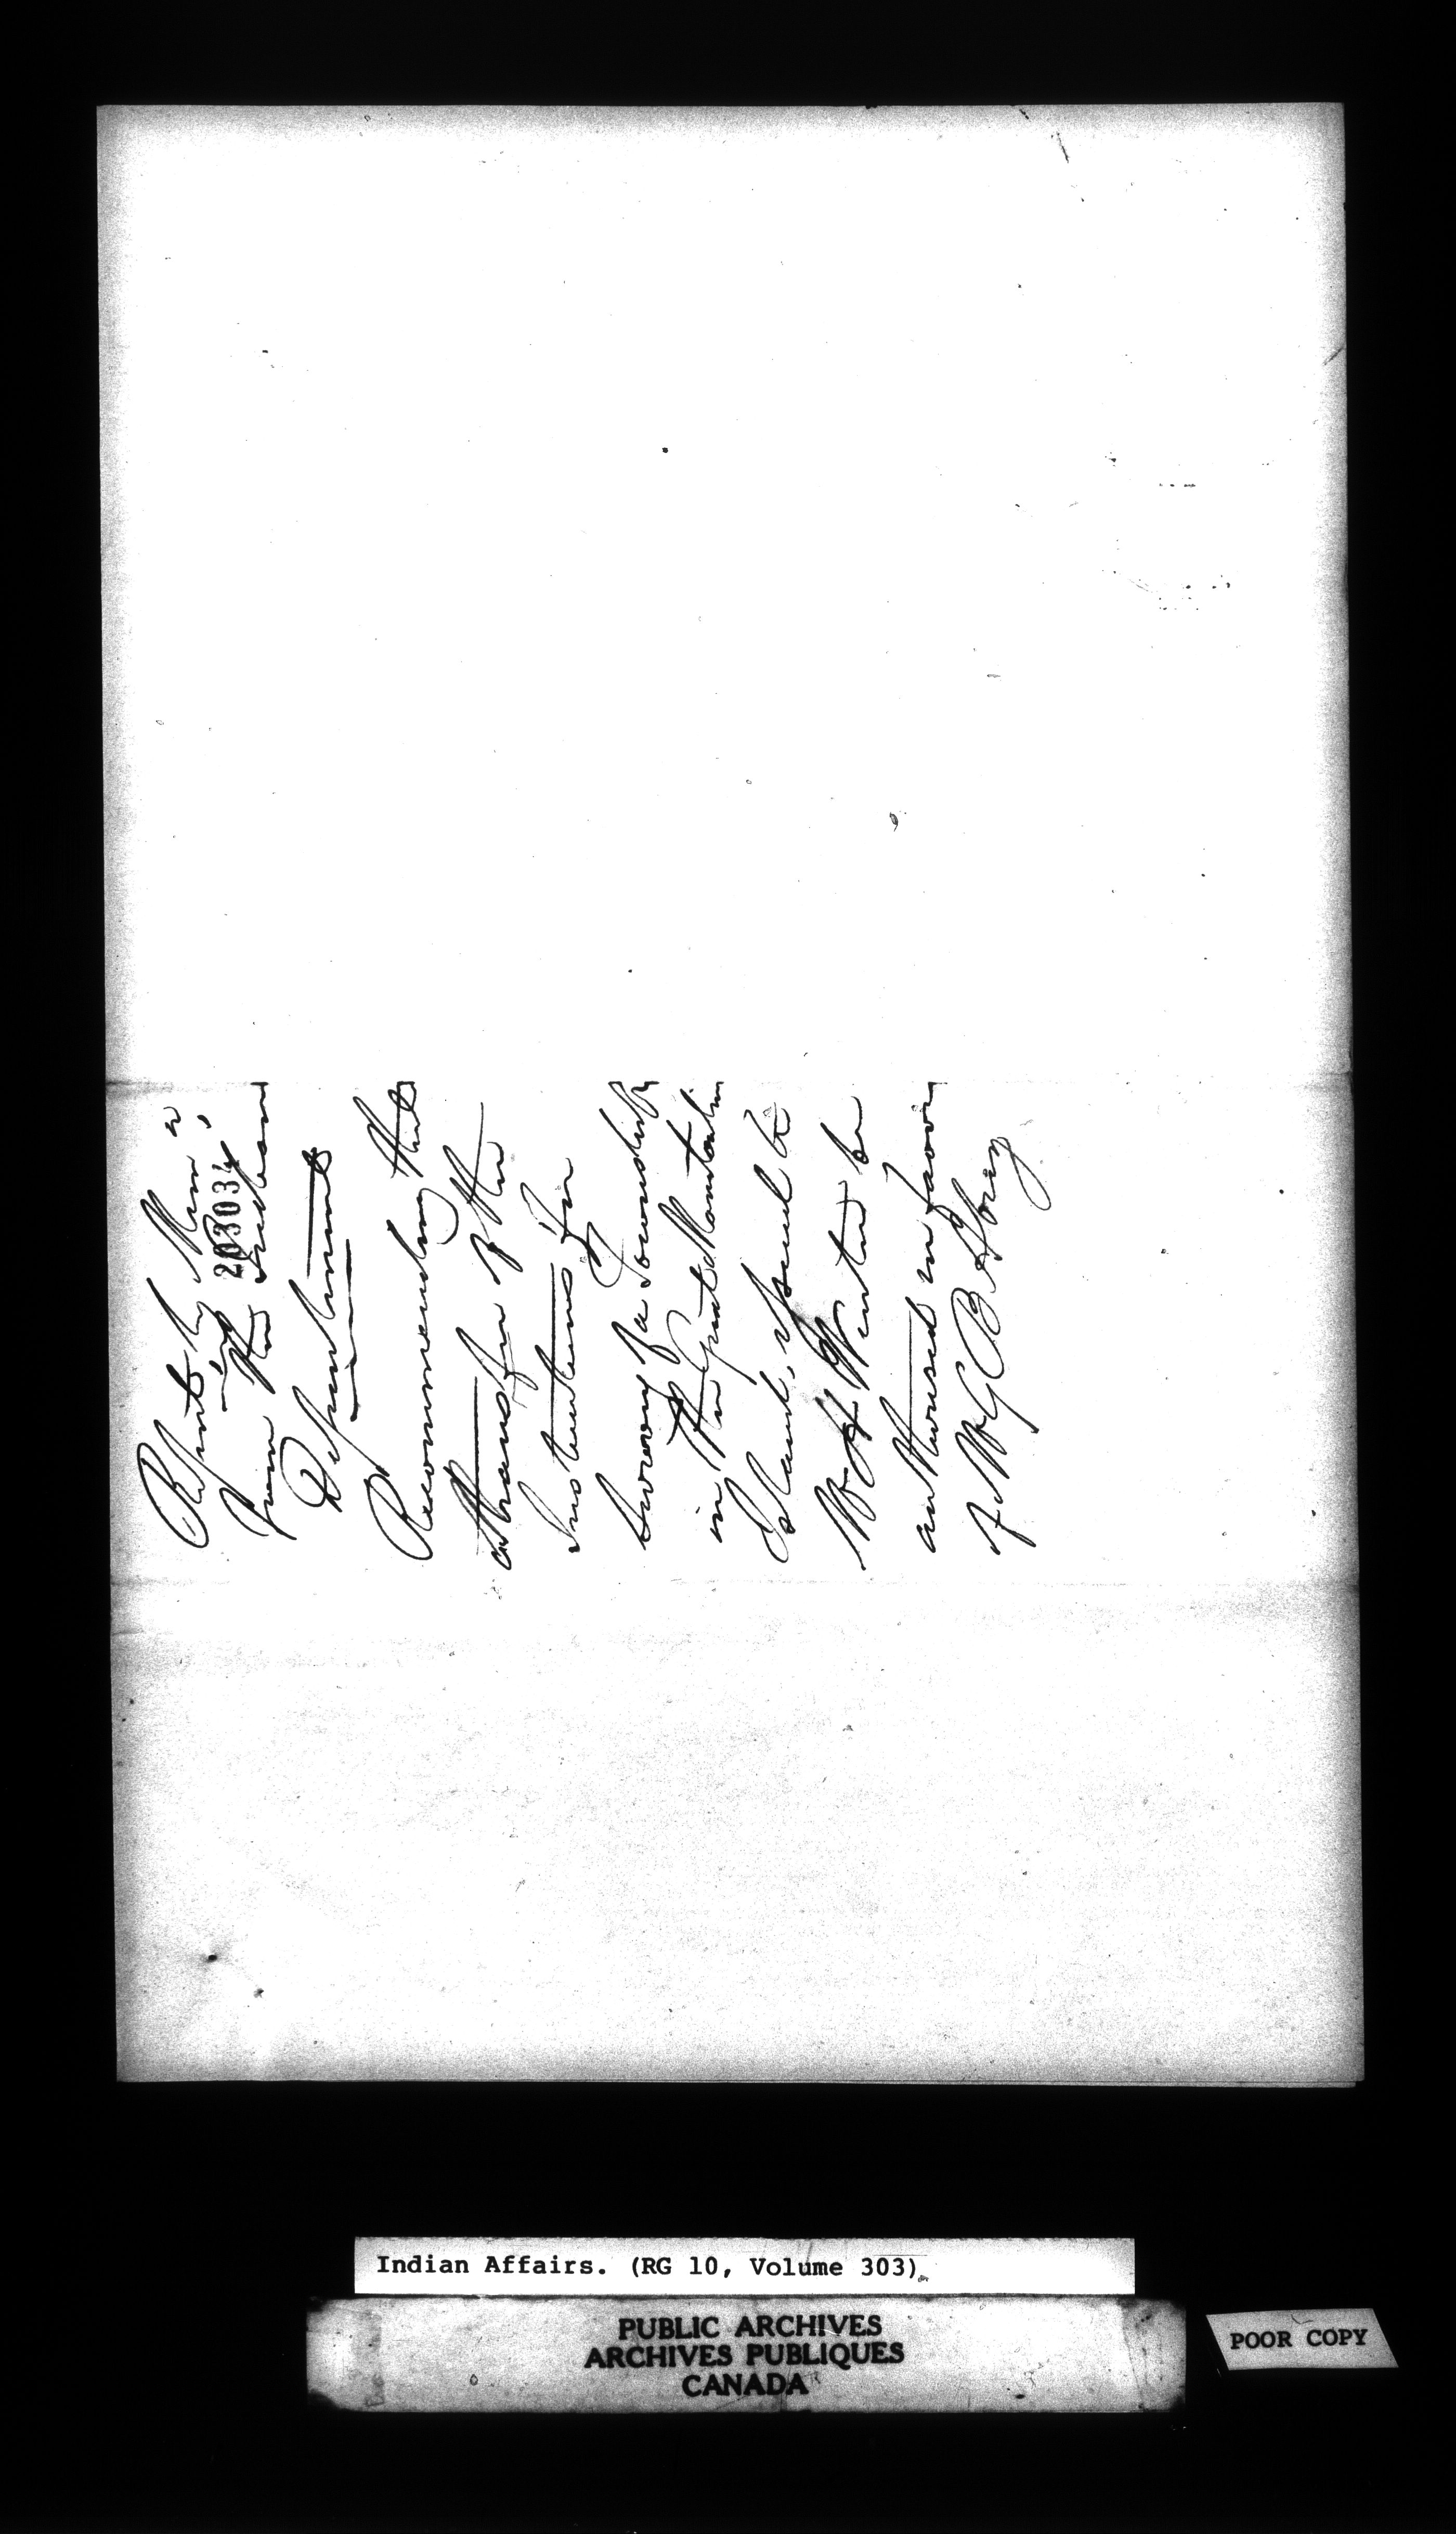 Report by Mem
203034
from the Indian
Department
Recommending that
a transfer of the
Instructions for
Survey of a Township
in the Great Manitoulin
Island, issued to
W. H. Winter be
authorised in favor
of W G B
Indian Affairs. (RG 10, Volume 303)
PUBLIC ARCHIVES
ARCHIVES PUBLIQUES
CANADA
POOR COPY